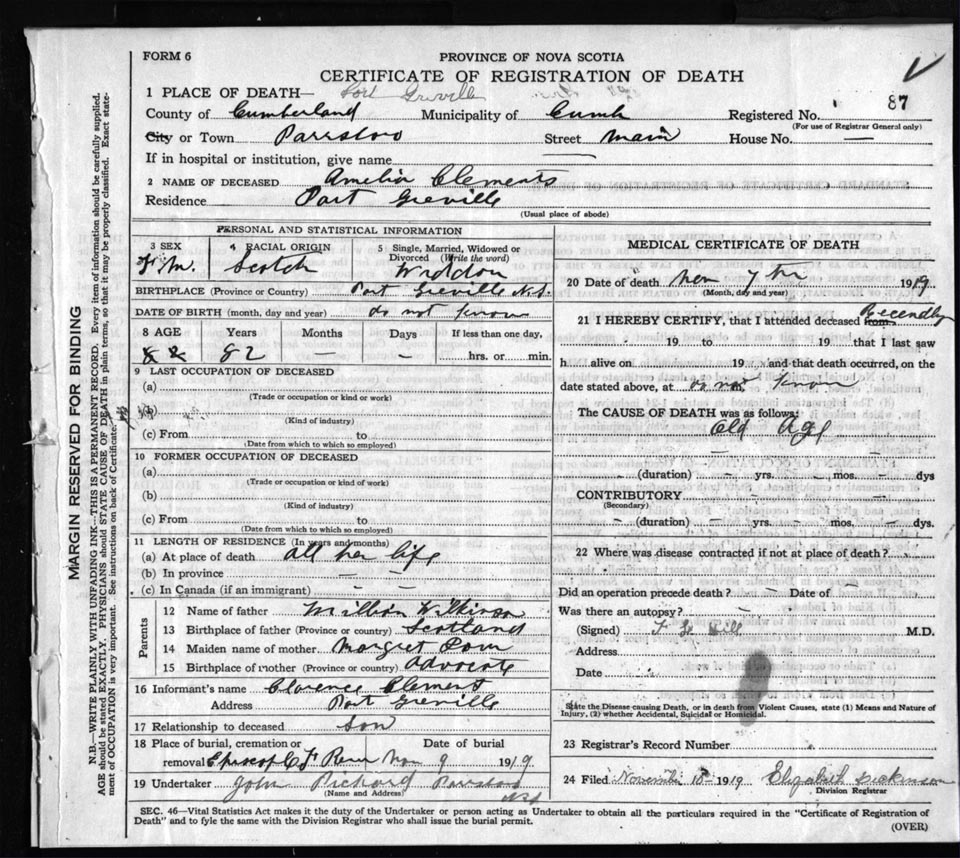 FORM 6
PROVINCE OF NOVA SCOTIA
CERTIFICATE OF REGISTRATION OF DEATH
1 PLACE OF DEATH— Port Greville
87
County of Cumberland Municipality of Cumb Registered No.
(For use of Registrar General only)
City or Town Parrsboro Street Main House No. —
If in hospital or institution, give name
2 NAME OF DECEASED Amelia Clements
Residence Port Greville
(Usual place of abode)
PERSONAL AND STATISTICAL INFORMATION
3 SEX 4 RACIAL ORIGIN 5 Single, Married, Widowed or Divorced (Write the word)
Scotch Widdow
BIRTHPLACE (Province or Country) Port Greville N.S.
DATE OF BIRTH (month, day and year) do not know
8 AGE Years Months Days If less than one day,
82 82 — — hrs. or min.
9 LAST OCCUPATION OF DECEASED
(a)
(Trade or occupation or kind of work)
(b)
(Kind of industry)
(c) From to
(Date from which to which so employed)
10 FORMER OCCUPATION OF DECEASED
(a)
(Trade or occupation or kind of work)
(b)
(Kind of industry)
(c) From to
(Date from which to which so employed)
11 LENGTH OF RESIDENCE (In years and months)
(a) At place of death all her life
(b) In province — —
(c) In Canada (if an immigrant) - -
Parents
12 Name of father William Wilkinson
13 Birthplace of father (Province or country) Scotland
14 Maiden name of mother Margret
15 Birthplace of mother (Province or country) Advocate
16 Informant's name Clarence Clement
Address Port Greville
17 Relationship to deceased Son
18 Place of burial, cremation or Date of burial
removal Nov 9 1919
19 Undertaker John Pickard Parrsboro
(Name and Address) N.S.
MEDICAL CERTIFICATE OF DEATH
20 Date of death Nov 7th 1919
(Month, day and year)
21 I HEREBY CERTIFY, that I attended deceased from
19 to 19 that I last saw
h alive on 19 and that death occurred, on the
date stated above, at do not know
The CAUSE OF DEATH was as follows:
Old Age
(duration) — yrs. — mos. — dys
CONTRIBUTORY
(Secondary)
(duration) yrs. mos. dys.
22 Where was disease contracted if not at place of death?
Did an operation precede death? — Date of
Was there an autopsy? —
(Signed) M.D.
Address
Date
State the Disease causing Death, or in death from Violent Causes, state (1) Means and Nature of
Injury, (2) whether Accidental, Suicidal or Homicidal.
23 Registrar's Record Number
24 Filed November 10 1919 Elizabeth Dickinson
Division Registrar
SEC. 46—Vital Statistics Act makes it the duty of the Undertaker or person acting as Undertaker to obtain all the particulars required in the "Certificate of Registration of
Death" and to fyle the same with the Division Registrar who shall issue the burial permit.
(OVER)
MARGIN RESERVED FOR BINDING
N.B.—WRITE PLAINLY WITH UNFADING INK—THIS IS A PERMANENT RECORD. Every item of information should be carefully supplied.
AGE should be stated EXACTLY. PHYSICIANS should STATE CAUSE OF DEATH in plain terms, so that it may be properly classified. Exact state-
ment of OCCUPATION is very important. See instructions on back of Certificate.